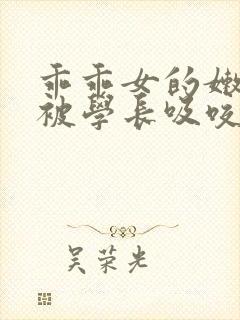 乖乖女的嫩
被學長吸咬
吴荣光